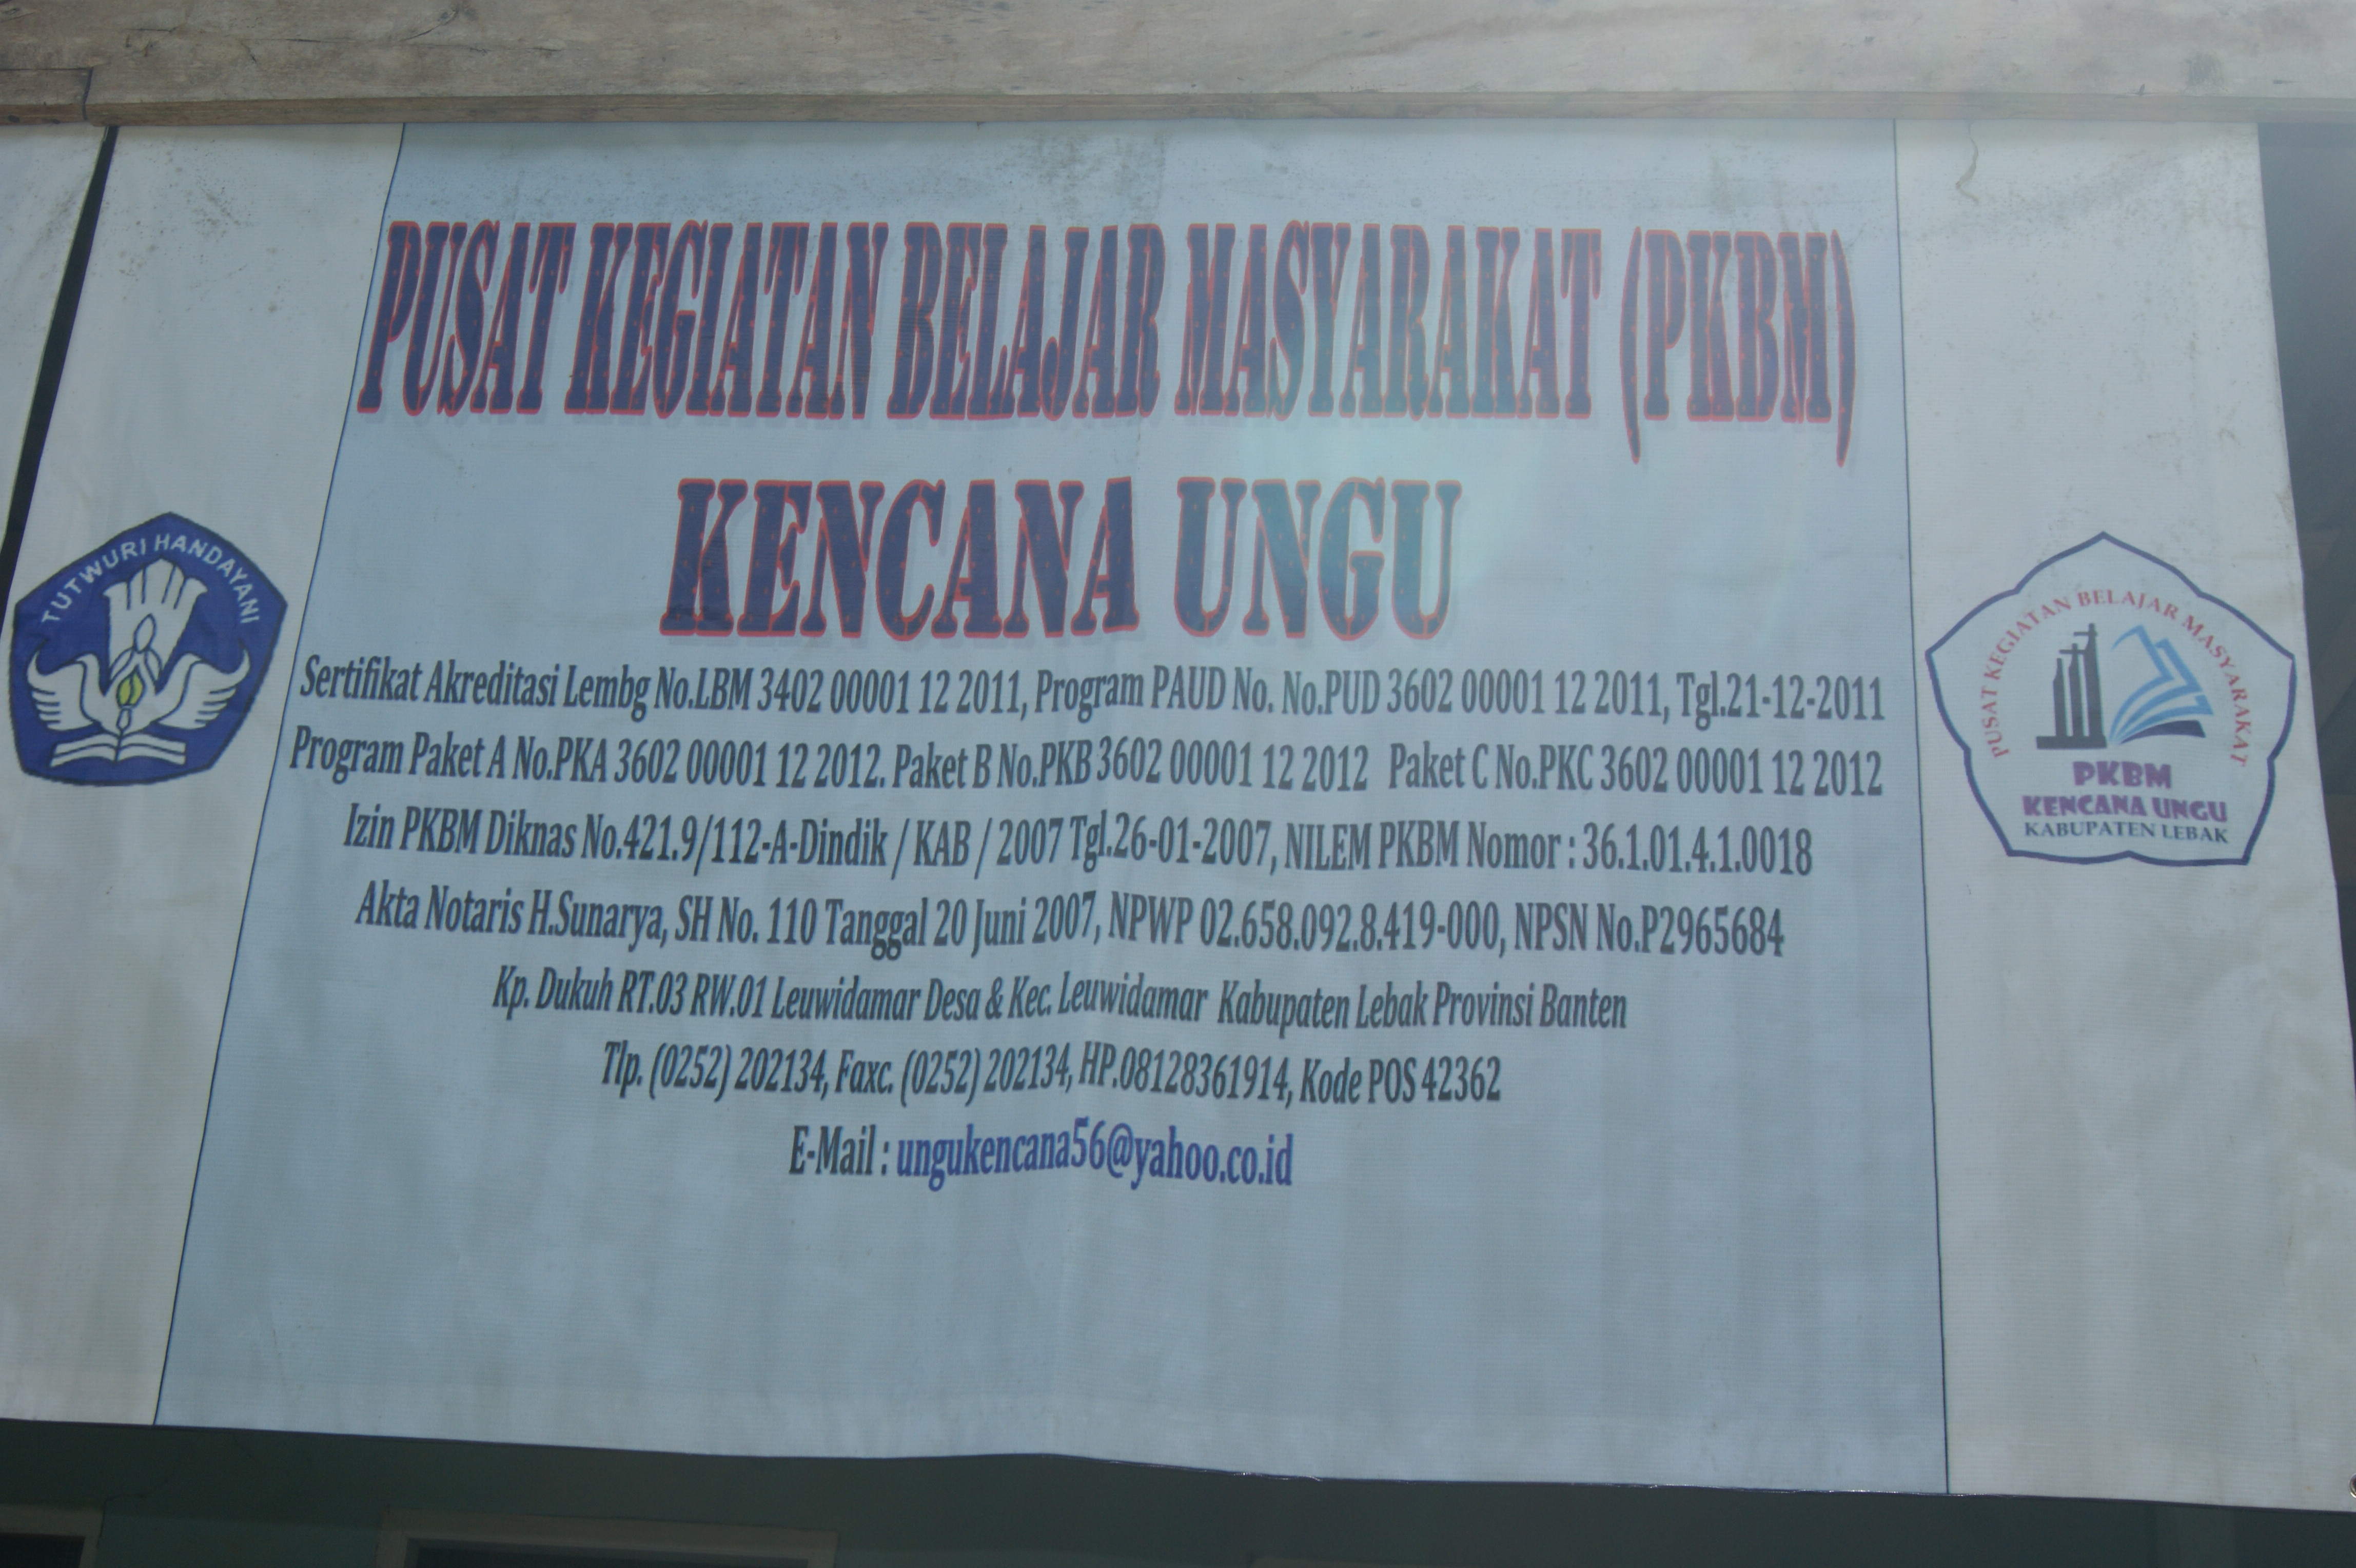 PUSAT KEGIATAN BELAJAR MASYARAKAT (PKBM)
KENCANA UNGU
TUTWURI HANDAYANI
Sertifikat Akreditasi Lembg No.LBM 3402 00001 12 2011, Program PAUD No. No.PUD 3602 00001 12 2011, Tgl.21-12-2011
Program Paket A No.PKA 3602 00001 12 2012. Paket B No.PKB 3602 00001 12 2012 Paket C No.PKC 3602 00001 12 2012
Izin PKBM Diknas No.421.9/112-A-Dindik / KAB / 2007 Tgl.26-01-2007, NILEM PKBM Nomor : 36.1.01.4.1.0018
Akta Notaris H.Sunarya, SH No. 110 Tanggal 20 Juni 2007, NPWP 02.658.092.8.419-000, NPSN No.P2965684
Kp. Dukuh RT.03 RW.01 Leuwidamar Desa & Kec. Leuwidamar Kabupaten Lebak Provinsi Banten
Tlp. (0252) 202134, Faxc. (0252) 202134, HP.08128361914, Kode POS 42362
E-Mail : ungukencana56@yahoo.co.id
PUSAT KEGIATAN BELAJAR MASYARAKAT
PKBM
KENCANA UNGU
KABUPATEN LEBAK